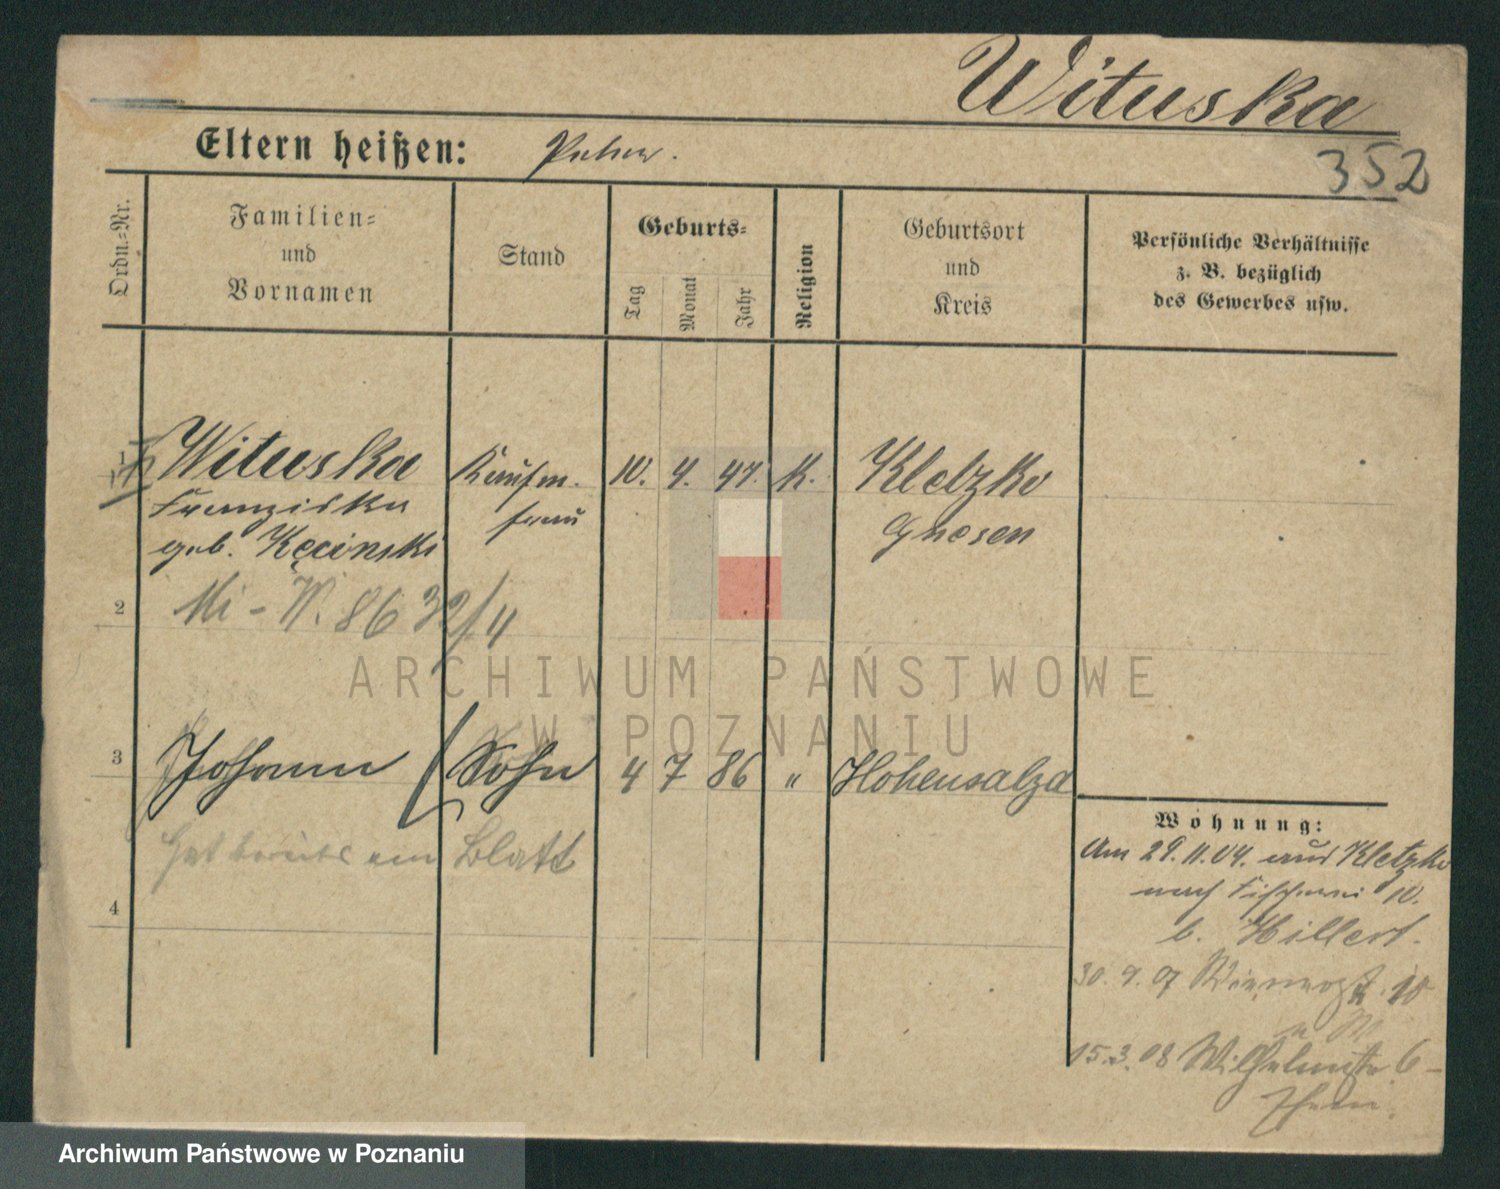 Wituska
Eltern heißen:
352
Ordn.-Nr.
Familien-
und
Vornamen
Stand
Geburts-
Tag
Monat
Jahr
Religion
Geburtsort
und
Kreis
Persönliche Verhältnisse
z. B. bezüglich
des Gewerbes usw.
1
Wituska Kaufm. 10. 4. 47. K. Kletzko
Franziska frau Gnesen
geb. Kęcinski
2
Mi - W. 8632/4
3 Johann Sohn 4 7 86 " Hohensalza
hat bereits ein Blatt
4
Wohnung:
Am 29.11.04. aus Kletzko
nach Fischerei 10.
b. Hillert.
30. 9. 07 18
15.3.08 Wilhelmstr. 6
ARCHIWUM PAŃSTWOWE
W POZNANIU
Archiwum Państwowe w Poznaniu